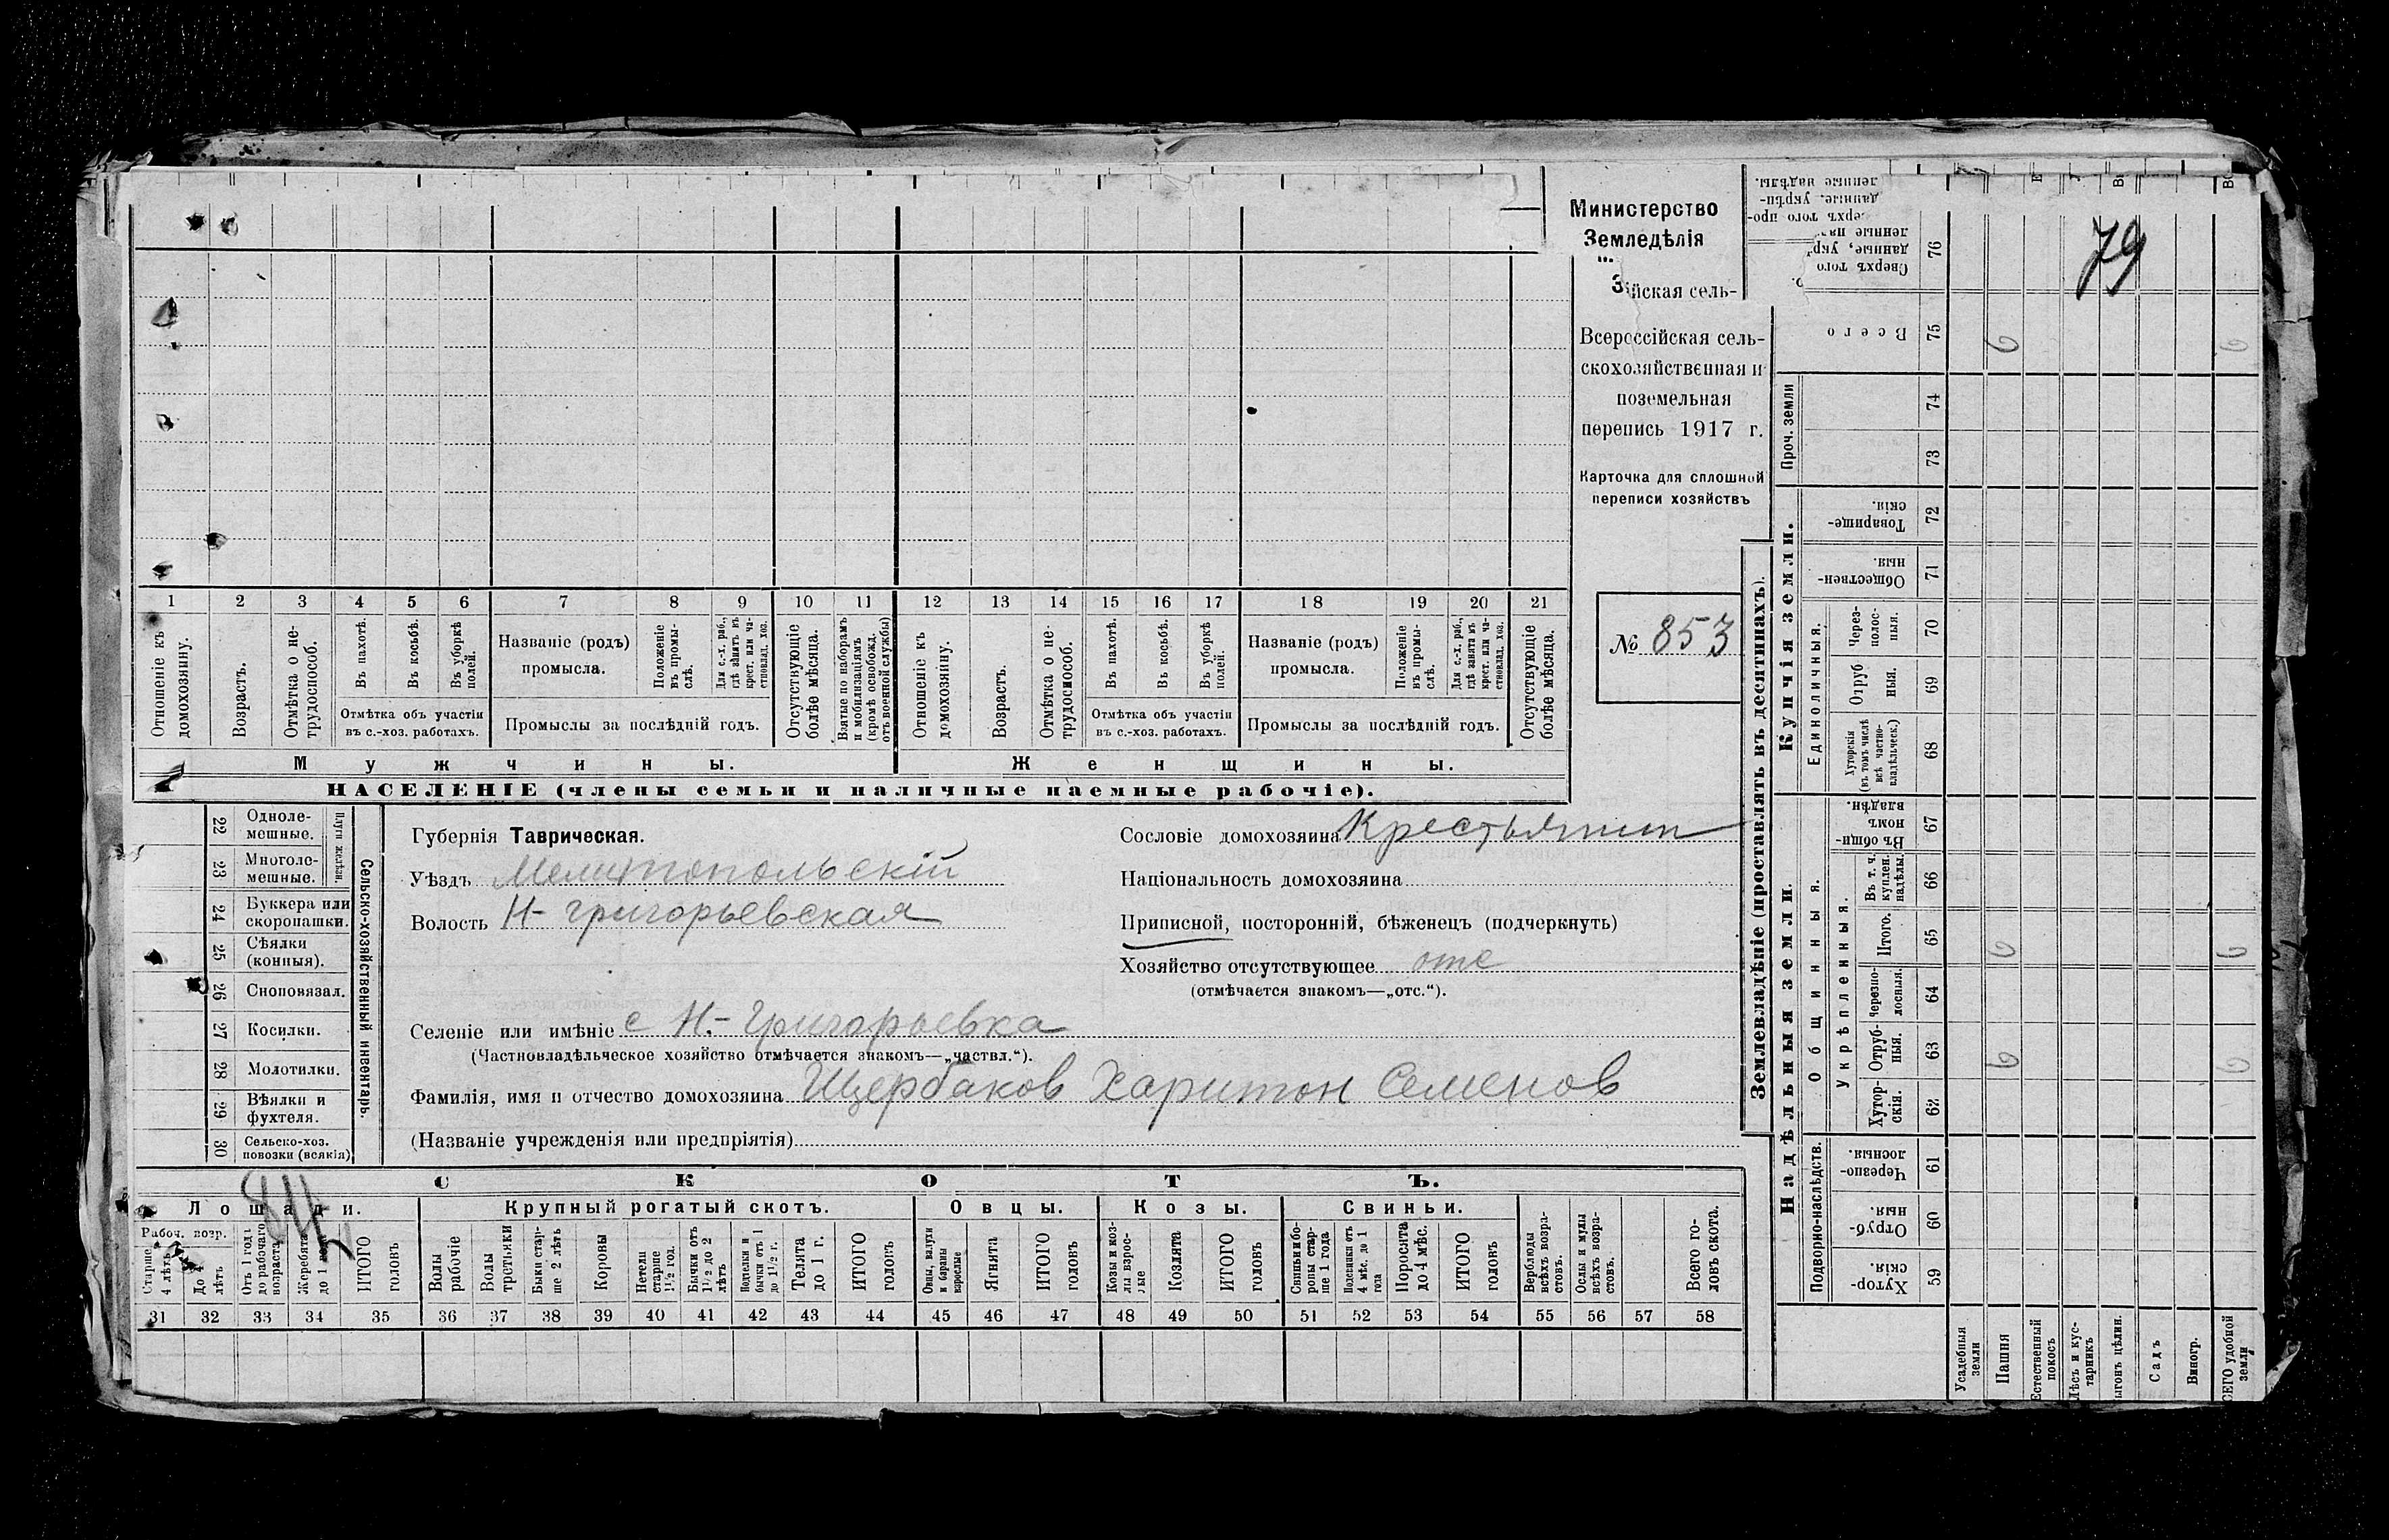 Министерство
Земледѣлія
йская сель-
Всероссійская сель-
скохозяйственная и
поземельная
перепись 1917 г.
Карточка для сплошной
переписи хозяйствъ
№ 853
1 2 3 4 5 6 7 8 9 10 11 12 13 14 15 16 17 18 19 20 21
Отношеніе къ домохозяину.
Возрастъ.
Отмѣтка о не-трудоспособ.
Въ пахотѣ.
Въ косьбѣ.
Въ уборкѣ полей.
Отмѣтка объ участіи
въ с.-хоз. работахъ.
Названіе (родъ)
промысла.
Положеніе въ промы-слѣ.
Для с.-х. раб., гдѣ занятъ въ крест. или ча-стновлад. хоз.
Промыслы за послѣдній годъ.
Отсутствующіе болѣе мѣсяца.
Взятые по наборамъ и мобилизаціямъ (кромѣ освобожд. отъ военной службы)
Отношеніе къ домохозяину.
Возрастъ.
Отмѣтка о не-трудоспособ.
Въ пахотѣ.
Въ косьбѣ.
Въ уборкѣ полей.
Отмѣтка объ участіи
въ с.-хоз. работахъ.
Названіе (родъ)
промысла.
Положеніе въ промы-слѣ.
Для с.-х. раб., гдѣ занята въ крест. или ча-стновлад. хоз.
Промыслы за послѣдній годъ.
Отсутствующіе болѣе мѣсяца.
Мужчины.
Женщины.
НАСЕЛЕНІЕ (члены семьи и наличные наемные рабочіе).
22 Одноле-мешные.
23 Многоле-мешные.
Плуги желѣзн.
24 Буккера или скоропашки.
25 Сѣялки (конныя).
26 Сноповязал.
27 Косилки.
28 Молотилки.
29 Вѣялки и фухтеля.
30 Сельско-хоз. повозки (всякія)
Сельско-хозяйственный инвентарь.
Губернія Таврическая.
Уѣздъ Мелитопольскій
Волость Н-Григорьевская
Сословіе домохозяина Крестьянин
Національность домохозяина
Приписной, посторонній, бѣженец (подчеркнуть)
Хозяйство отсутствующее отс
(отмѣчается знакомъ—„отс.“).
Селеніе или имѣніе с Н.-Григорьевка
(Частновладѣльческое хозяйство отмѣчается знакомъ—„частвл.“).
Фамилія, имя и отчество домохозяина Щербаков Харитон Семенов
(Названіе учрежденія или предпріятія)
СКОТЪ.
Лошади.
Крупный рогатый скотъ.
Овцы.
Козы.
Свиньи.
Рабоч. возр.
Старше 4 лѣтъ
До 4 лѣтъ
Отъ 1 года до рабочаго возраста
Жеребята до 1 года
ИТОГО головъ
Волы рабочіе
Волы третьяки
Быки стар-ше 2 лѣтъ
Коровы
Нетели старше 1½ год.
Бычки отъ 1½ до 2 лѣтъ
Подтелки и бычки отъ 1 до 1½ г.
Телята до 1 г.
ИТОГО головъ
Овцы, валухи и бараны взрослые
Ягнята
ИТОГО головъ
Козы и коз-лы взрос-лые
Козлята
ИТОГО головъ
Свиньи и бо-ровы стар-ше 1 года
Подсвинки отъ 4 мѣс. до 1 года
Поросята до 4 мѣс.
ИТОГО головъ
Верблюды всѣхъ возра-стовъ.
Ослы и мулы всѣхъ возра-стовъ.
Всего го-ловъ скота.
31 32 33 34 35 36 37 38 39 40 41 42 43 44 45 46 47 48 49 50 51 52 53 54 55 56 57 58
79
Землевладѣніе (проставлять въ десятинахъ).
Надѣльныя земли.
Купчія земли.
Проч. земли
Подворно-наслѣдств.
Общинныя.
Укрѣпленныя.
Единоличныя.
Сверхъ того 76
Всего 75
74
73
Товарище-скія 72
Обществен-ныя. 71
Через-полос-ныя. 70
Отруб ныя. 69
Хуторскія (въ томъ числѣ всѣ частно-владѣльческ.) 68
Въ общи-номъ владѣн. 67
Въ т. ч. куплен. надѣлы. 66
Итого. 65
Черезпо-лосныя. 64
Отруб-ныя. 63
Хутор-скія. 62
Черезпо-лосныя. 61
Отруб-ныя. 60
Хутор-скія. 59
Усадебныя земли
Пашня
Естественный покосъ
Лѣсъ и кус-тарникъ
ыгонъ цѣлин.
Садъ
Виногр.
СЕГО удобной земли